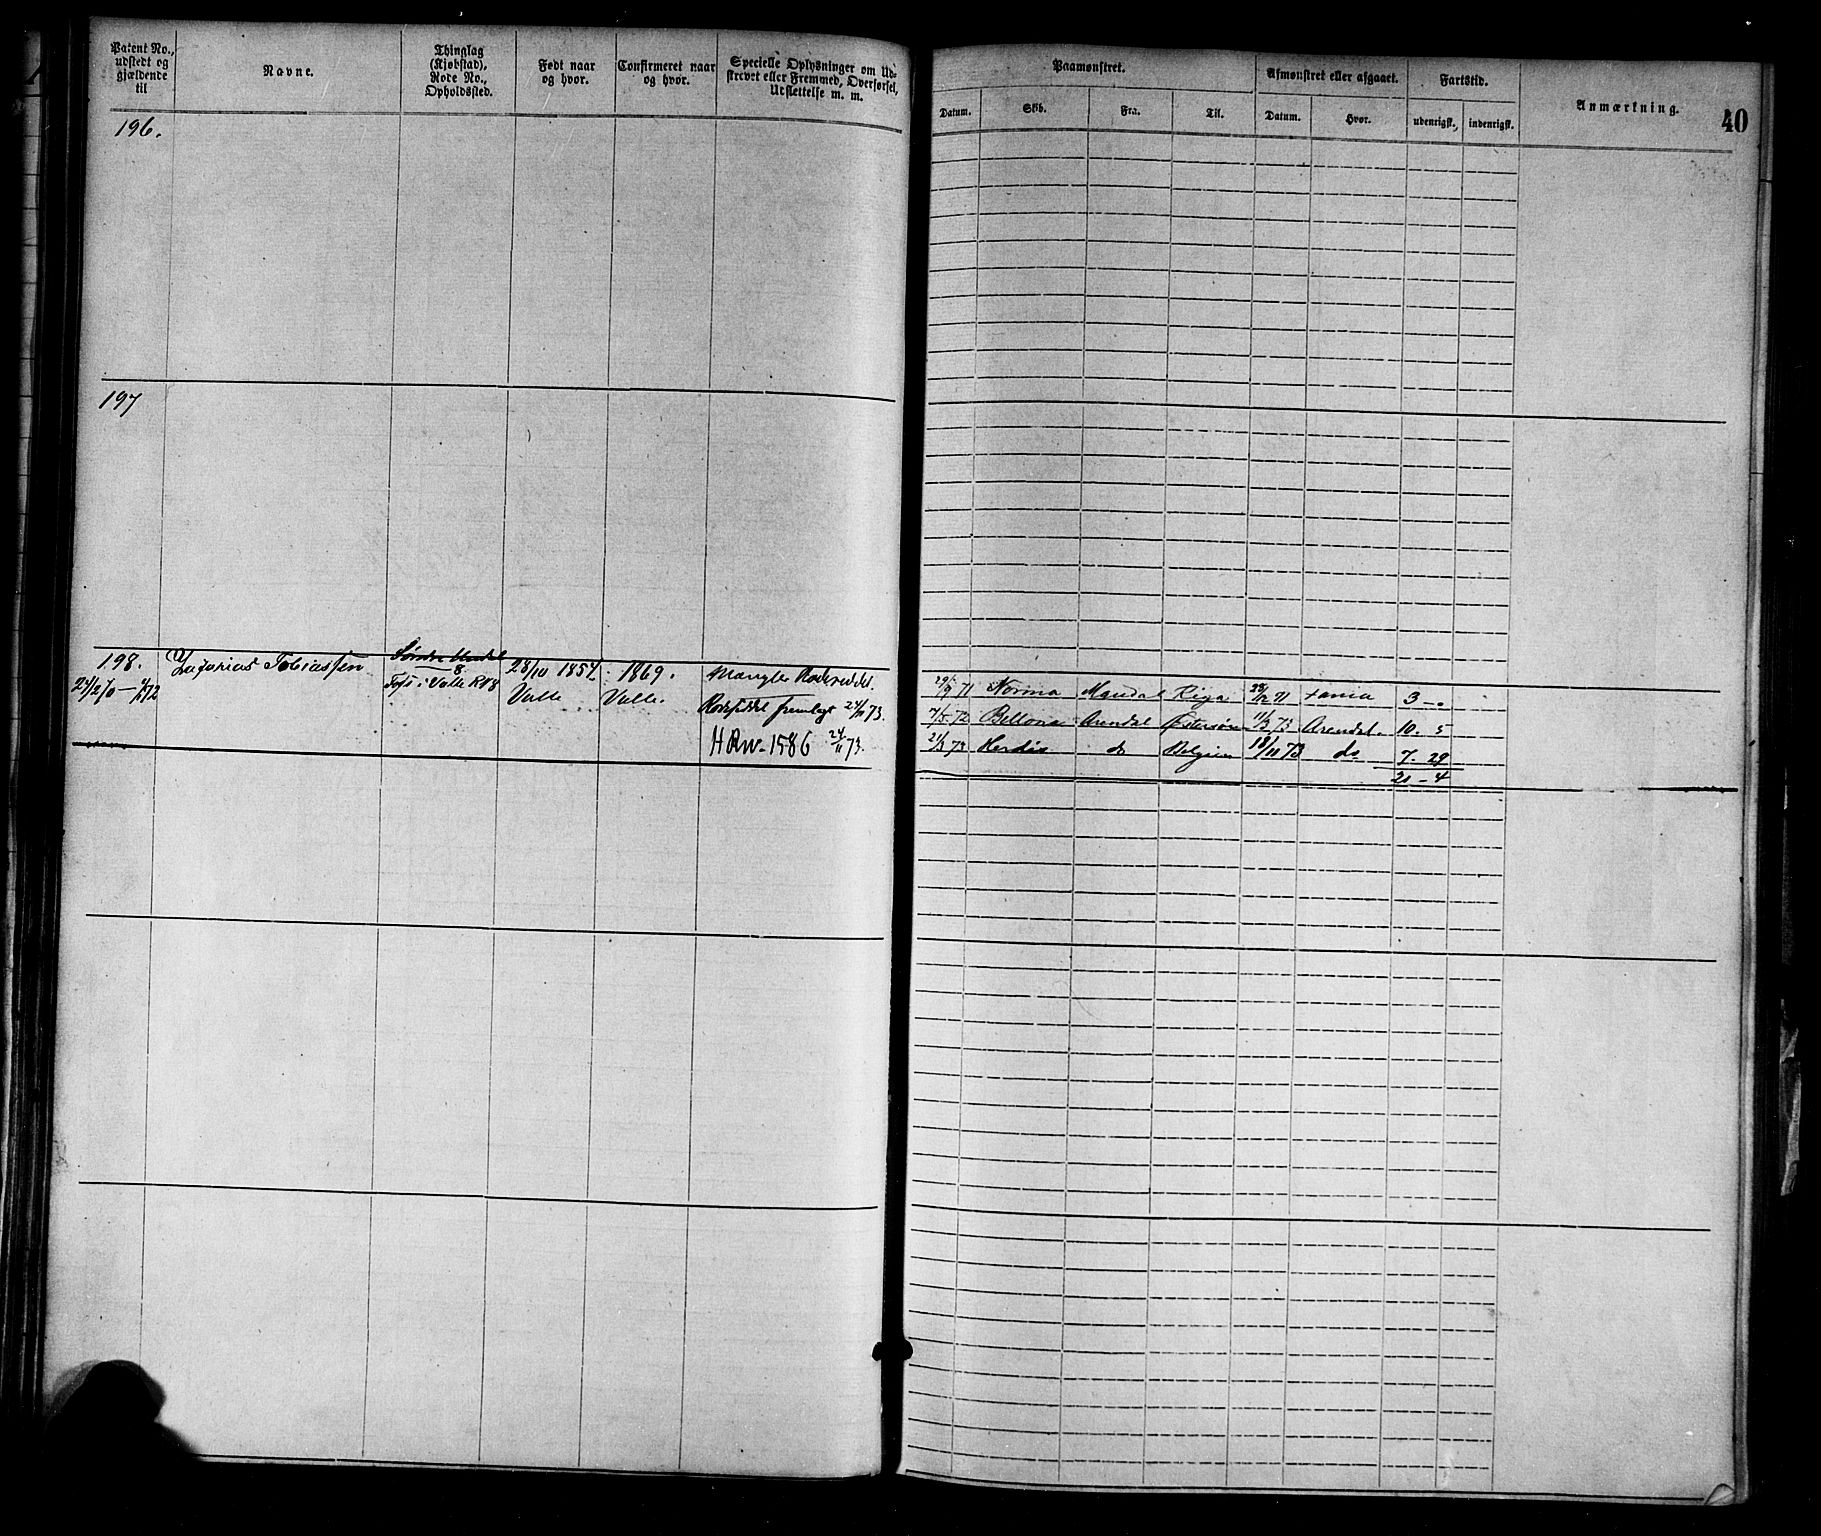 Patent No., udstedt og gjældende til
Navne.
Thinglag (Kjøbstad), Rode No., Opholdssted.
Født naar og hvor.
Confirmeret naar og hvor.
Specielle Oplysninger om Udskrevet eller Fremmed, Overførsel, Udslettelse m. m.
Paamønstret.
Afmønstret eller afgaaet.
Fartstid.
Anmærkning.
40
Datum.
Skib.
Fra.
Til.
Datum.
Hvor.
udenrigsk.,
indenrigsk.
196.
197
198.
Zacharias Tobiassen
Søndre Undal
8
28/10 1854.
1869.
Mangler Rodeseddel.
i Valle R No 8
Valle
Valle.
Rodeseddel fremlagt 24/11 73.
H Rw. 1586 24/11 73.
29/9 71 Norma Mandal Riga 28/12 71 3 -
4/5 72 Bellona Arendal Østersøen 11/3 73 Arendal. 10. 5
21/3 73 Herdis do Belgien 18/11 73 do 7. 29
20 - 4